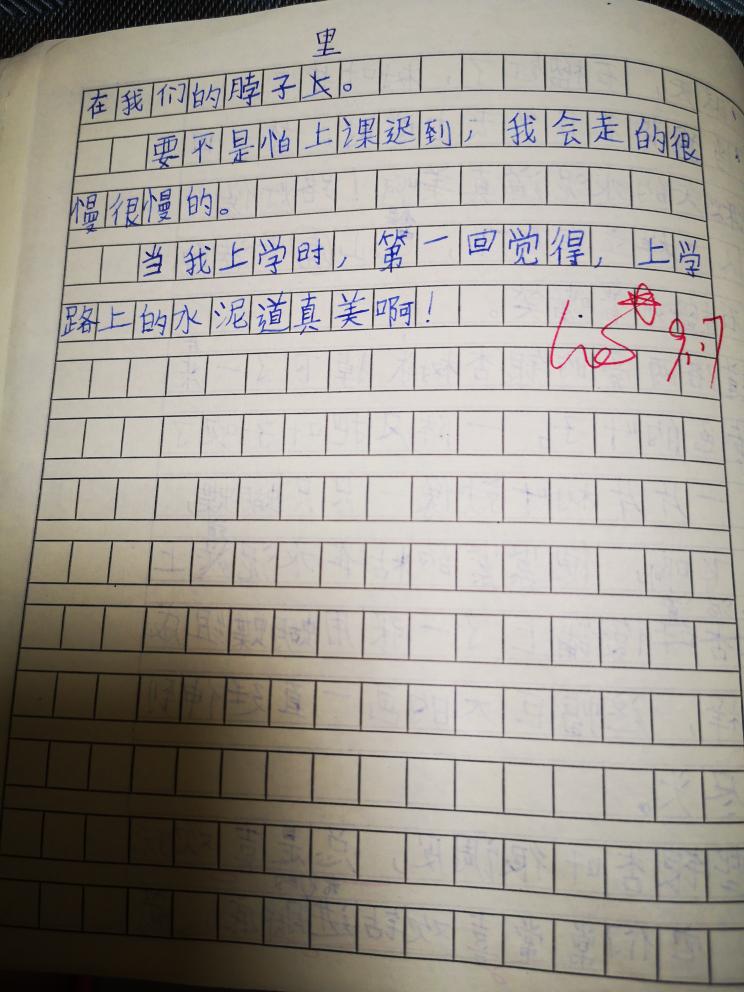 里
在我们的脖子长。
要不是怕上课迟到，我会走的很
慢很慢的。
当我上学时，第一回觉得，上学
路上的水泥道真美啊！
9.7